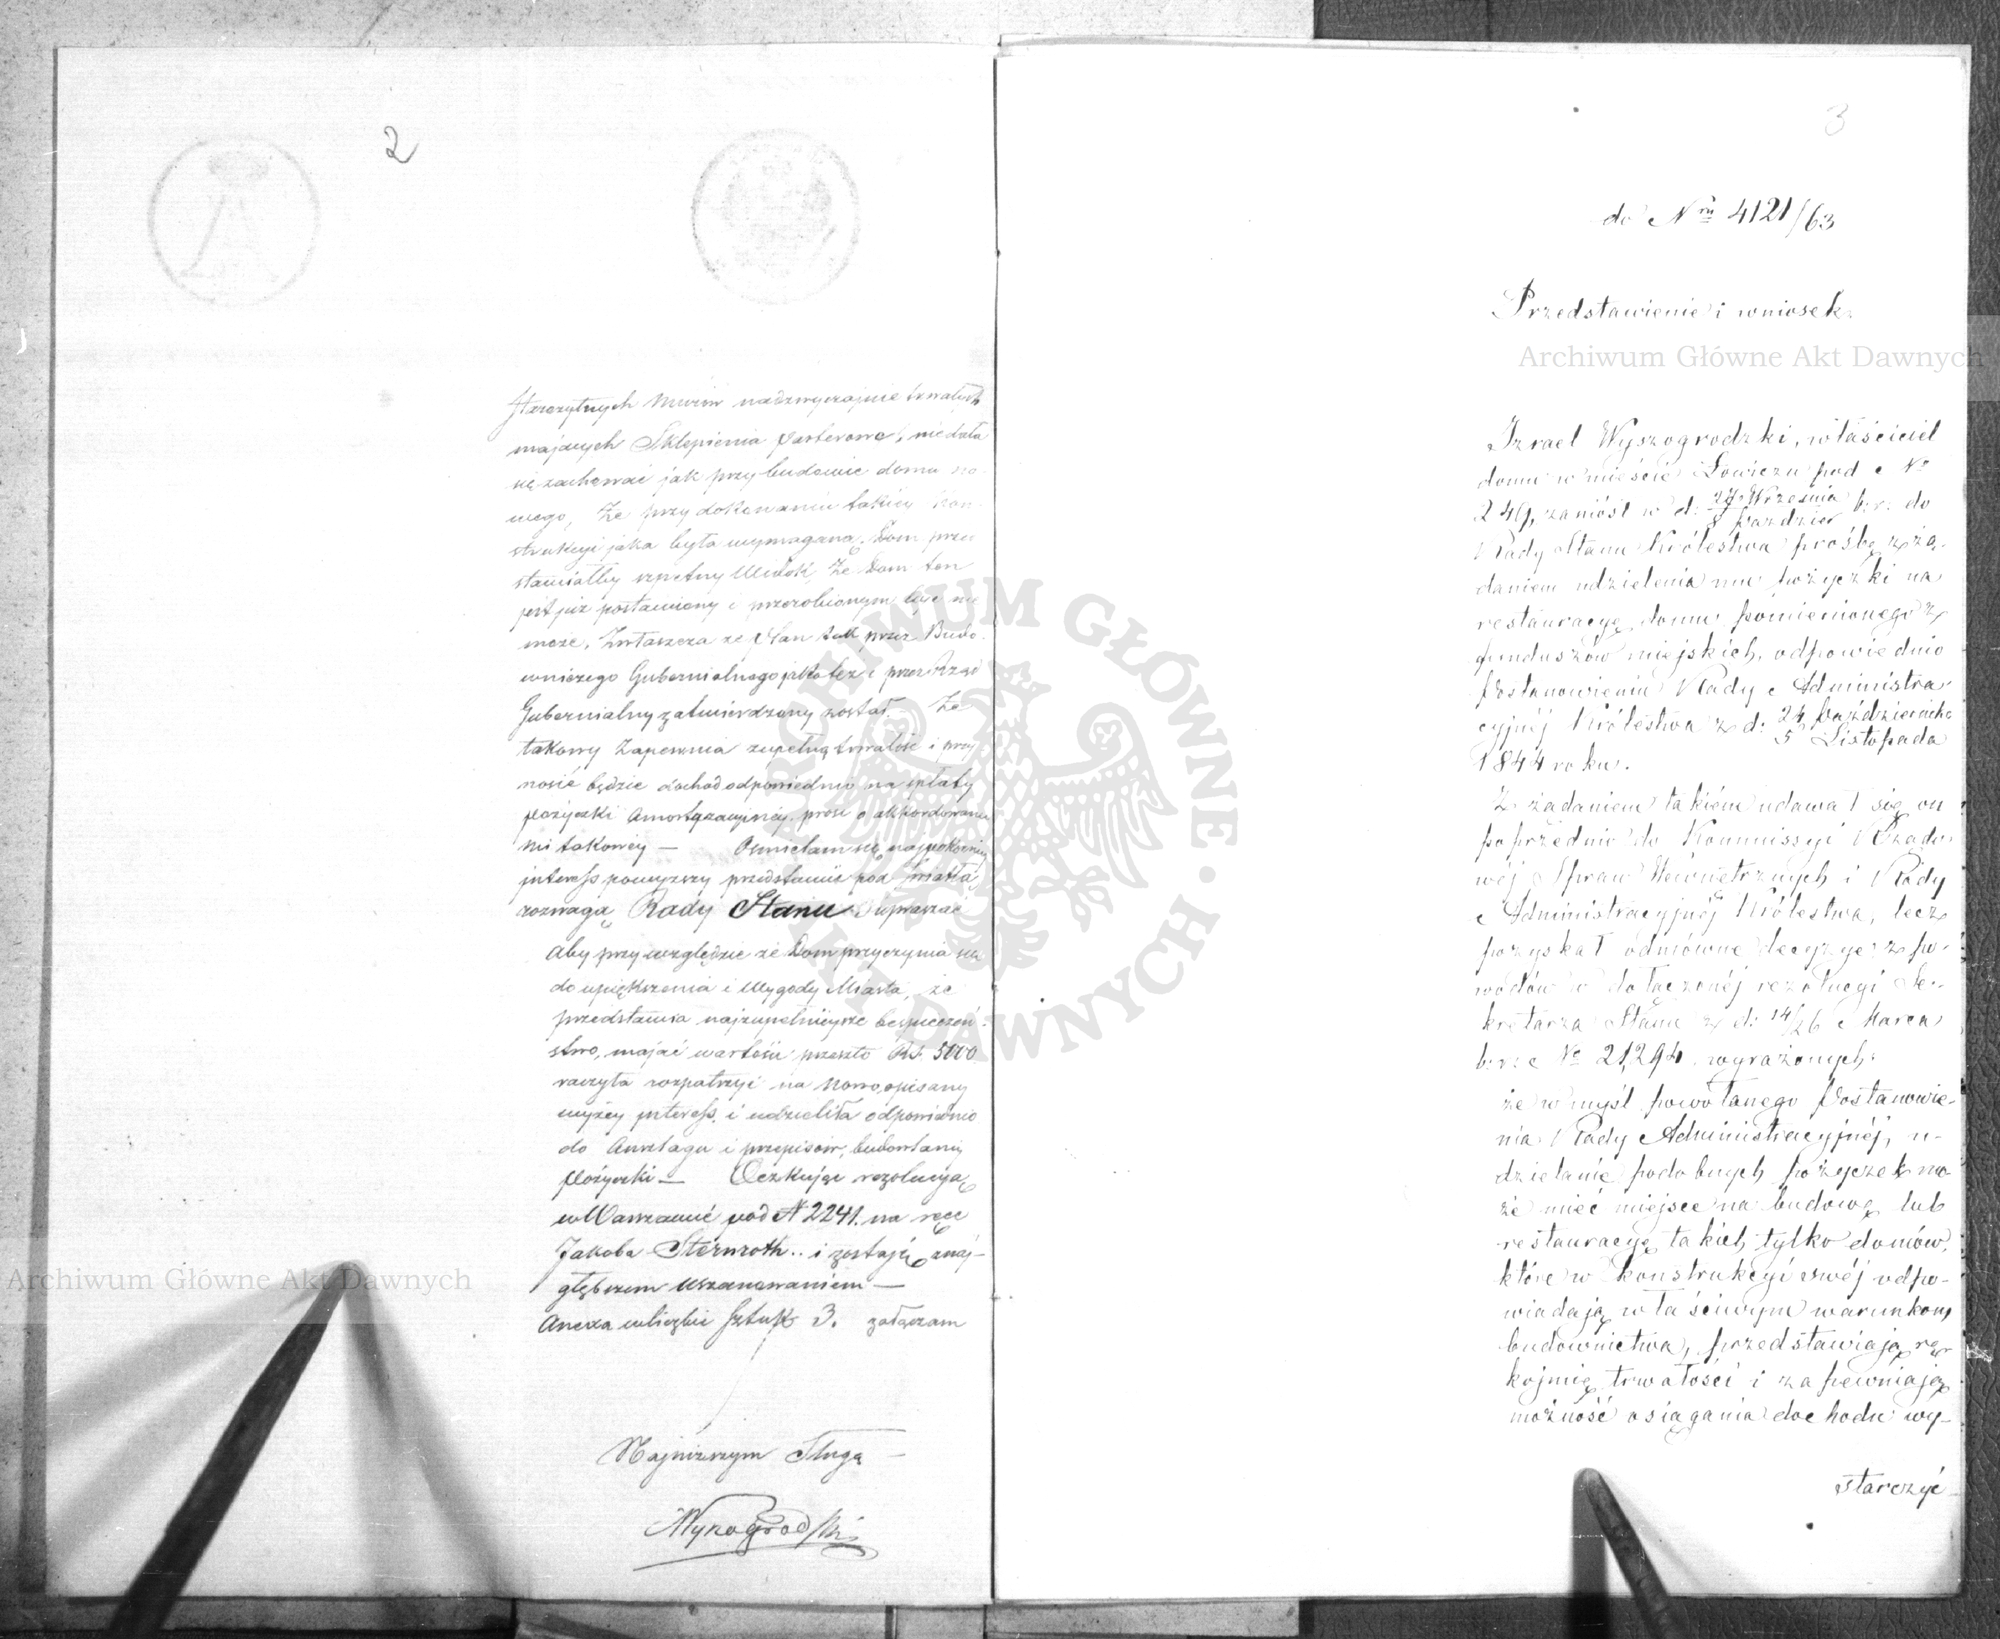 2
Starożytnych Murów nadzwyczajnie trwałych
mających Sklepienia parterowe, nie dała
się zachować jak przy budowie domu no-
wego, Że przy dokonaniu takiej kon-
strukcyi jaka była wymagana, Dom przed
stawiałby szpetny Widok, Że Dom ten
jest już postawiony i przerobionym być nie
może, Zwłaszcza że plan tak przez Budo-
wniczego Gubernialnego jako też i przez Rząd
Gubernialny zatwierdzony został. — Że
takowy Zapewnia zupełną trwałość i przy
nosić będzie dochód odpowiednio na spłaty
pożyczki Amortyzacyjnej, prosi o akkordowanie
mi takowej — Ośmielam się najpokorniej
interess powyższy przedstawić pod światłą
rozwagę Rady Stanu i upraszać
aby przy względzie że Dom przyczynia się
do upiększenia i Wygody Miasta, że
przedstawia najzupełniejsze bezpieczeń-
stwo, mając wartości przeszło Rs. 5000
raczyła rozpatrzyć na nowo opisany
wyżej interess, i udzieliła odpowiednio
do Anszlagu i przepisów, budowlanej
pożyczki — Oczkując rezolucyją
w Warszawie pod N 2241. na ręce
Jakoba Sternroth.. i zostaję z naj-
głębszem uszanowaniem —
Anexa w liczbie Sztuk 3. załączam
Najniższym Sługą —
Wyszogrodzki
3
do Nru 4121/63
Przedstawienie i wniosek.
Izrael Wyszogrodzki, właściciel
domu w mieście Łowiczu pod No
249, zaniósł w d: 27 Września / 9 Paździer b: r: do
Rady Stanu Królestwa prośbę z żą-
daniem udzielenia mu pożyczki na
restauracyę domu pomienionego z
funduszów miejskich, odpowiednio
Postanowieniu Rady Administra-
cyjnéj Królestwa z d: 24 Października / 5 Listopada
1844 roku.
Z żądaniem takiém udawał się on
poprzednio do Kommissyi Rządo-
wéj Spraw Wewnętrznych i Rady
Administracyjnéj Królestwa, lecz
pozyskał odmówne decyzye z po-
wodów w dołączonéj rezolucyi Se-
kretarza Stanu z d: 14/26 Marca
b: r: No 21,294 wyrażonych:
że w myśl powołanego Postanowie-
nia Rady Administracyjnéj, u-
dzielanie podobnych pożyczek mo-
że mieć miejsce na budowę lub
restauracyę takich tylko domów,
które w konstrukcyi swéj odpo-
wiadają właściwym warunkom
budownictwa, przedstawiają rę-
kojmię trwałości i zapewniają
możność osiągania dochodu wy-
starczyć
Archiwum Główne Akt Dawnych
Archiwum Główne Akt Dawnych
ARCHIWUM GŁÓWNE AKT DAWNYCH